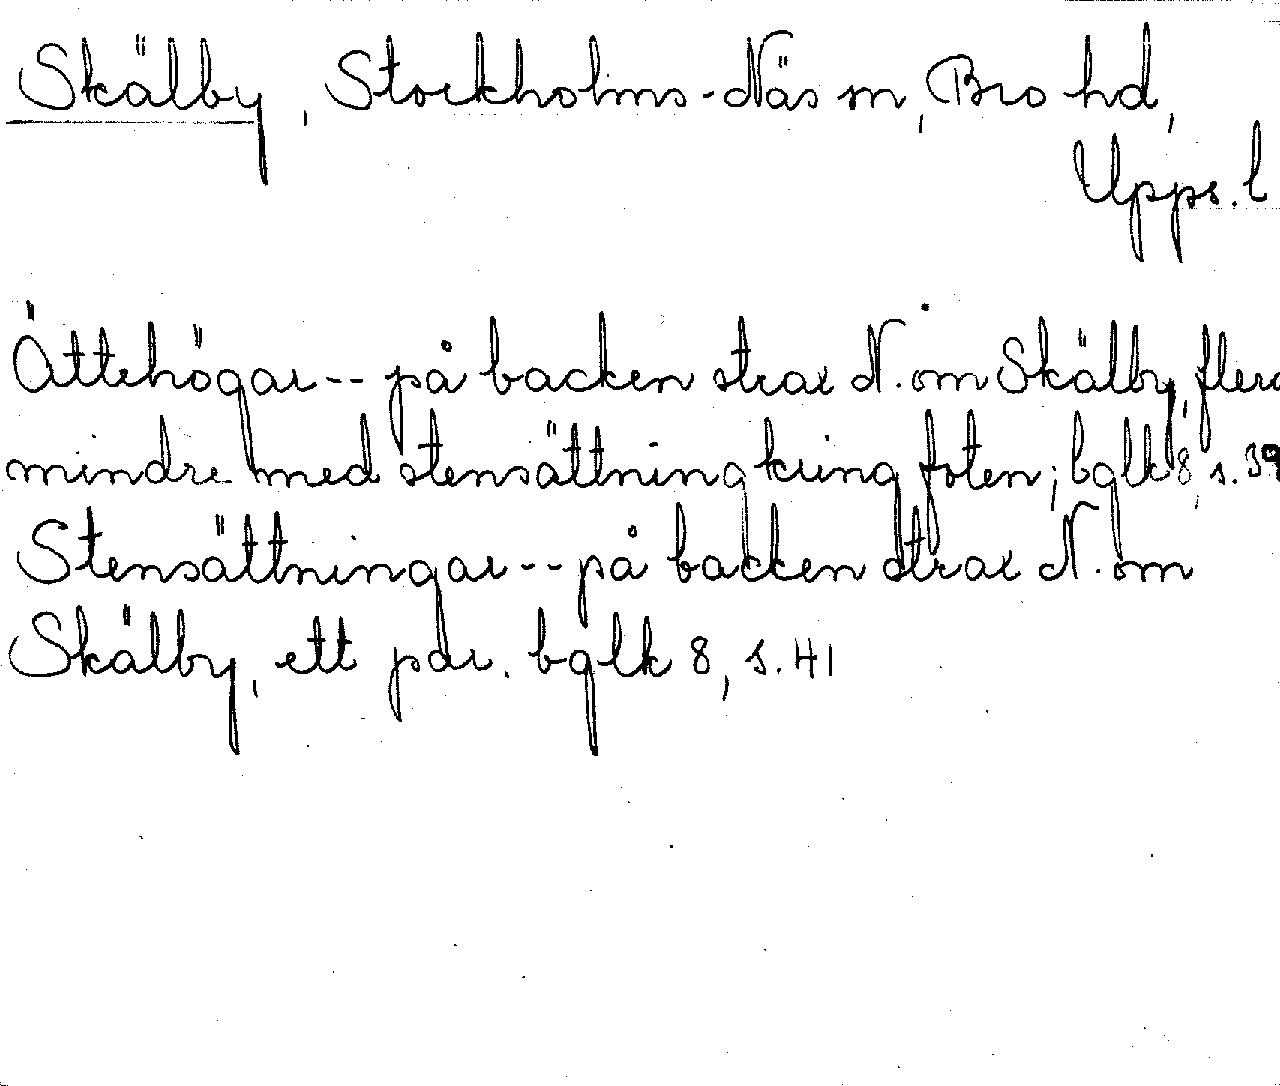 Skälby, Stockholms-Näs sn, Bro hd,
Upps. l
Ättehögar-- på backen strax N. om Skälby, flera
mindre med stensättning kring foten; bglk 8, s. 39
Stensättningar -- på backen strax N. om
Skälby, ett par. bglk 8, s. 41